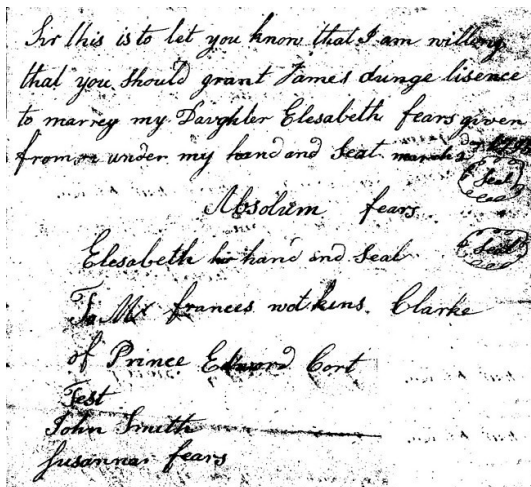 Sir this is to let you know that I am willeng
that you should grant James dunge lisence
to marrey my Daughter Elesabeth fears given
from under my hand and Seal march 2
Seal
Absolum fears
Elesabeth hand and Seal
Seal
To Mr frances wotkens. Clarke
of Prince Edword Cort
Test
John Smith
Susanna fears